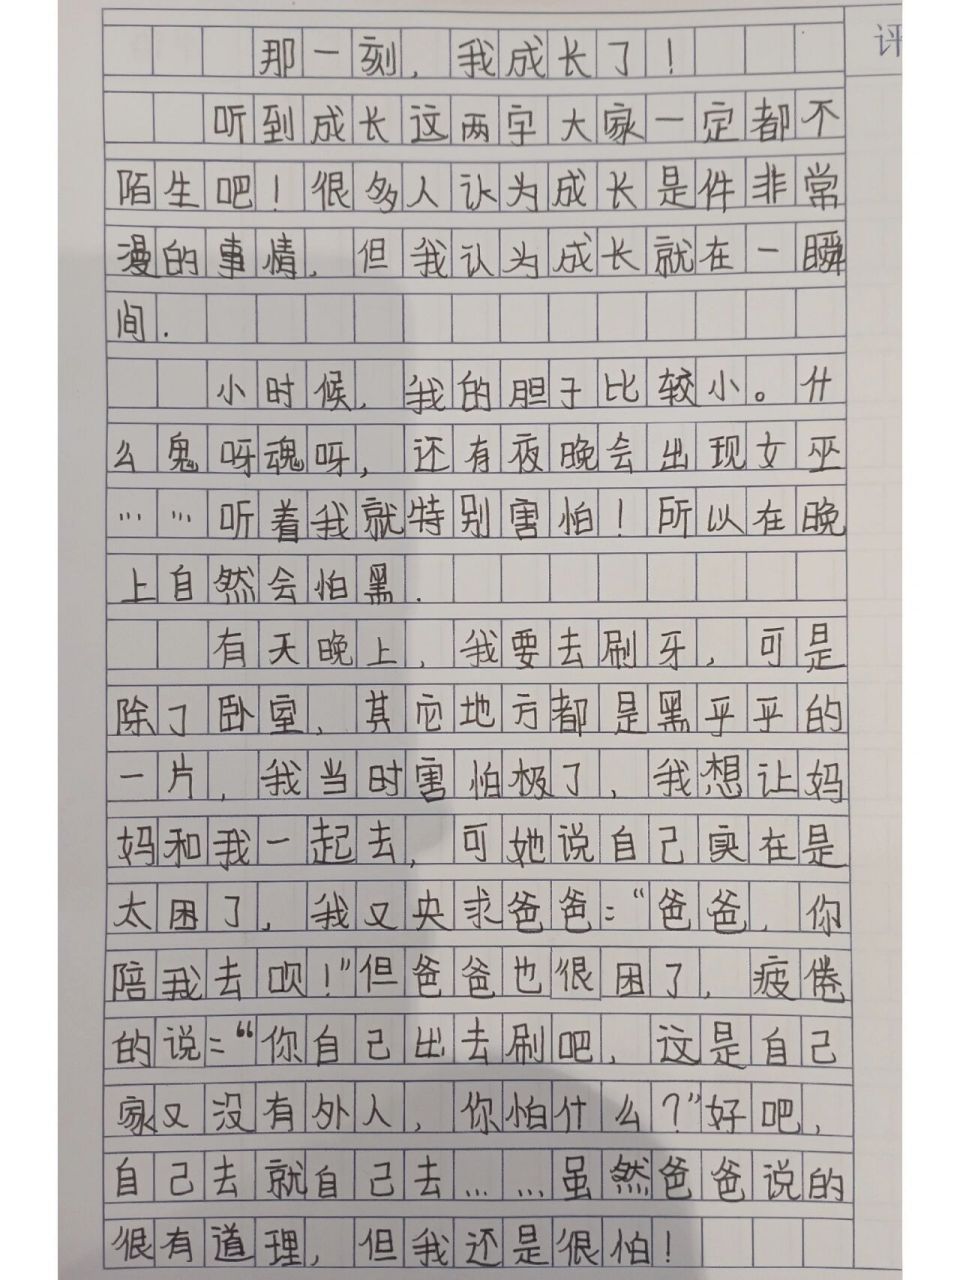 评
那一刻，我成长了！
听到成长这两字大家一定都不
陌生吧！很多人认为成长是件非常
漫的事情，但我认为成长就在一瞬
间．
小时候，我的胆子比较小。什
么鬼呀魂呀，还有夜晚会出现女巫
……听着我就特别害怕！所以在晚
上自然会怕黑．
有天晚上，我要去刷牙，可是
除了卧室，其它地方都是黑乎乎的
一片，我当时害怕极了，我想让妈
妈和我一起去，可她说自己实在是
太困了，我又央求爸爸：“爸爸，你
陪我去呗！”但爸爸也很困了，疲倦
的说：“你自己出去刷吧，这是自己
家又没有外人，你怕什么？”好吧，
自己去就自己去……虽然爸爸说的
很有道理，但我还是很怕！